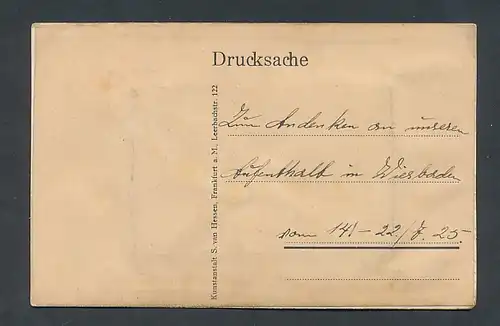 Drucksache
Zum Andenken an unseren
Aufenthalt in Wiesbaden
vom 14/-22/7.25.
Kunstanstalt S. van Hessen, Frankfurt a. M., Leerbachstr. 122